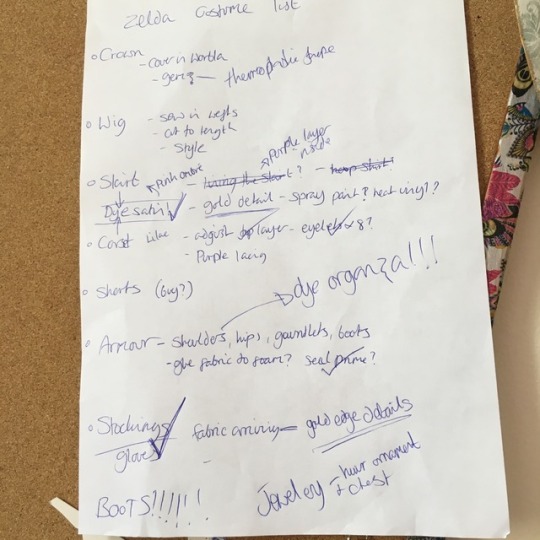 Zelda Costume list
• Crown
- cover in worbla
- gems - thermoplastic shape
• Wig - sew in wefts
- cut to length
- style
purple layer
inside
• Skirt pink ombre - lining the skirt? - hoop skirt!
Dye satin - gold detail - spray paint? heat vinyl??
• Corset lilac - adjust top layer - eyelets x 8?
- Purple lacing
• Shorts (buy?)
dye organza!!!
• Armour - shoulders, hips, gauntlets, boots
- glue fabric to foam? seal prime?
• Stockings fabric arriving - gold edge details
gloves
BOOTS!!!!!! Jewelery - hair ornament
+ chest